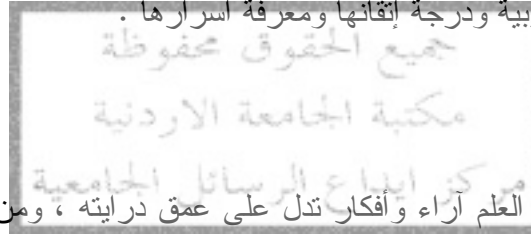 بية ودرجة إتقانها ومعرفة أسرارها .
جميع الحقوق محفوظة
مكتبة الجامعة الاردنية
مركز ايداع الرسائل الجامعية
العلم آراء وأفكار تدل على عمق درايته ، ومن